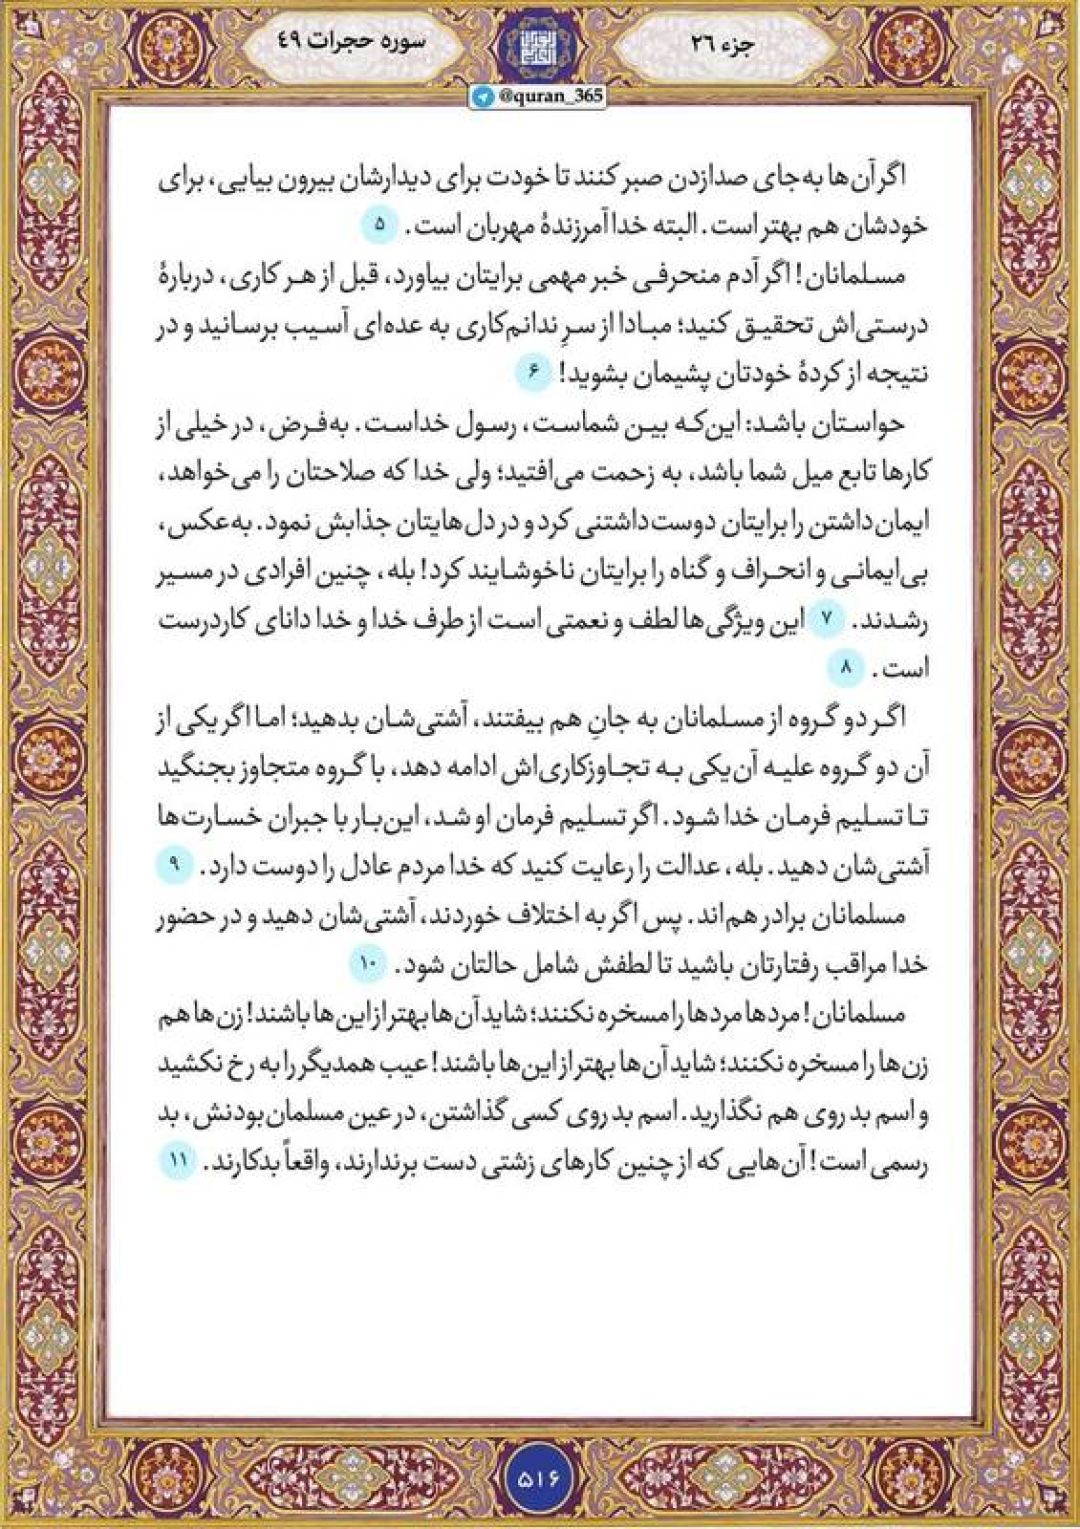 جزء ۲۶
سوره حجرات ۴۹
@quran_365
اگر آن‌ها به‌جای صدازدن صبر کنند تا خودت برای دیدارشان بیرون بیایی، برای
خودشان هم بهتر است. البته خدا آمرزندهٔ مهربان است. ۵
مسلمانان! اگر آدم منحرفی خبر مهمی برایتان بیاورد، قبل از هر کاری، دربارهٔ
درستی‌اش تحقیق کنید؛ مبادا از سرِ ندانم‌کاری به عده‌ای آسیب برسانید و در
نتیجه از کردهٔ خودتان پشیمان بشوید! ۶
حواستان باشد: این‌که بین شماست، رسول خداست. به‌فرض، در خیلی از
کارها تابع میل شما باشد، به زحمت می‌افتید؛ ولی خدا که صلاحتان را می‌خواهد،
ایمان‌داشتن را برایتان دوست‌داشتنی کرد و در دل‌هایتان جذابش نمود. به‌عکس،
بی‌ایمانی و انحراف و گناه را برایتان ناخوشایند کرد! بله، چنین افرادی در مسیر
رشدند. ۷ این ویژگی‌ها لطف و نعمتی است از طرف خدا و خدا دانای کاردرست
است. ۸
اگر دو گروه از مسلمانان به جانِ هم بیفتند، آشتی‌شان بدهید؛ اما اگر یکی از
آن دو گروه علیه آن‌یکی به تجاوزکاری‌اش ادامه دهد، با گروه متجاوز بجنگید
تا تسلیم فرمان خدا شود. اگر تسلیم فرمان او شد، این‌بار با جبران خسارت‌ها
آشتی‌شان دهید. بله، عدالت را رعایت کنید که خدا مردم عادل را دوست دارد. ۹
مسلمانان برادر هم‌اند. پس اگر به اختلاف خوردند، آشتی‌شان دهید و در حضور
خدا مراقب رفتارتان باشید تا لطفش شامل حالتان شود. ۱۰
مسلمانان! مردها مردها را مسخره نکنند؛ شاید آن‌ها بهتر از این‌ها باشند! زن‌ها هم
زن‌ها را مسخره نکنند؛ شاید آن‌ها بهتر از این‌ها باشند! عیب همدیگر را به رخ نکشید
و اسم بد روی هم نگذارید. اسم بد روی کسی گذاشتن، در عین مسلمان‌بودنش، بد
رسمی است! آن‌هایی که از چنین کارهای زشتی دست برندارند، واقعاً بدکارند. ۱۱
۵۱۶